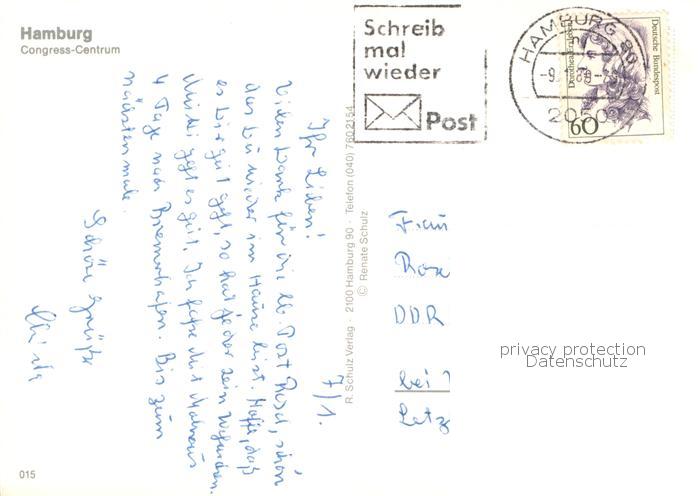 Hamburg
Congress-Centrum
Schreib
mal
wieder
Post
HAMBURG 90
-9.
2050
Deutsche Bundespost
60
7/1.
Ihr Lieben!
Vielen Dank für die lb. Post Rosel, schön
das Du wieder im Hause bist. Hoffe, daß
es Dir gut geht, so hat jeder sein
geht es gut. Ich fahre mit
4 Tage nach Bremerhafen. Bis zum
nächsten male.
Schöne Grüße
R. Schulz Verlag · 2100 Hamburg 90 · Telefon (040) 760 2154
© Renate Schulz
Frau
DDR
bei
privacy protection
Datenschutz
015